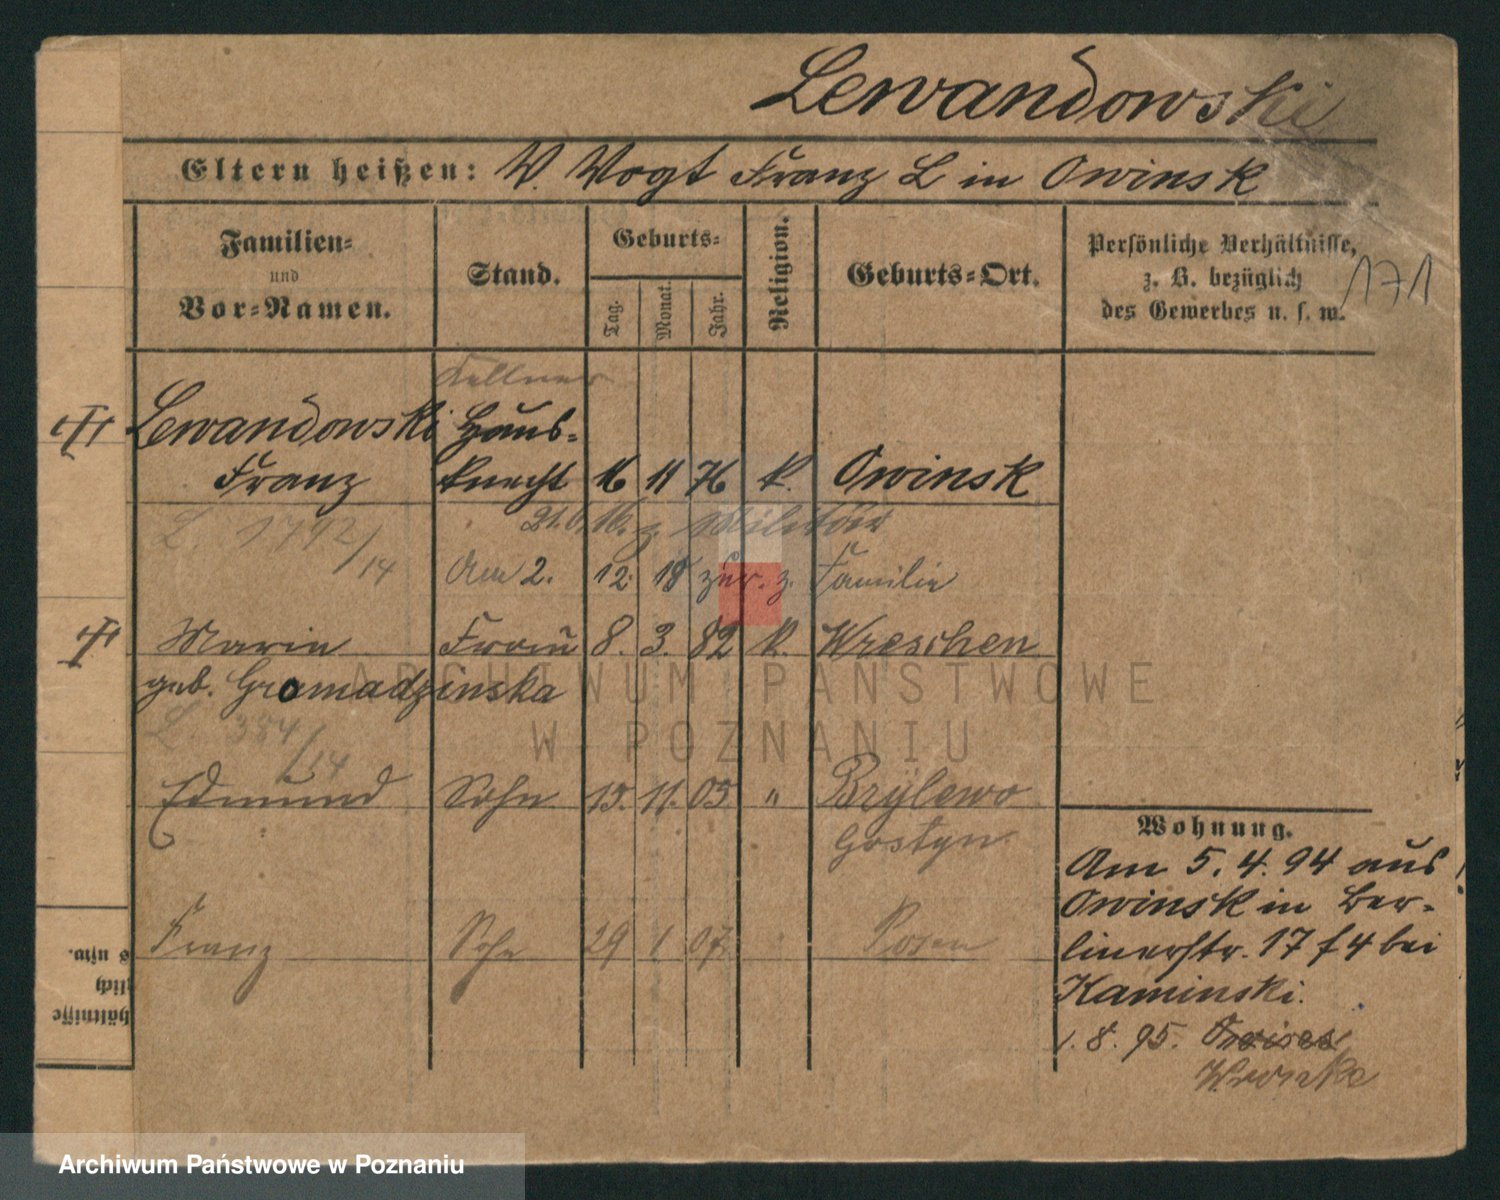 Lewandowski
Eltern heißen: V. Vogt Franz L in Owinsk
Familien=
und
Vor=Namen.
Stand.
Geburts=
Tag.
Monat.
Jahr.
Religion.
Geburts=Ort.
Persönliche Verhältnisse,
z. B. bezüglich
des Gewerbes u. s. w.
171
Kellner
Lewandowski Haus-
Franz knecht 16 11 76 k. Owinsk
L. 1792/14
z. Militär
Am 2. 12. 18 zur. z. Familie
Marie Frau 8. 3. 82 k. Wreschen
geb. Gromadzinska
L. 354/14
Edmund Sohn 15. 11. 05 " Brylewo
Gostyn
Franz Sohn 29 1 07 Posen
Wohnung.
Am 5. 4. 94 aus
Owinsk in Ber-
linerstr. 17 f 4 bei
Kaminski.
1. 8. 95.
Wronke
s usw.
glich
hältnisse
ARCHIWUM PAŃSTWOWE
W POZNANIU
Archiwum Państwowe w Poznaniu